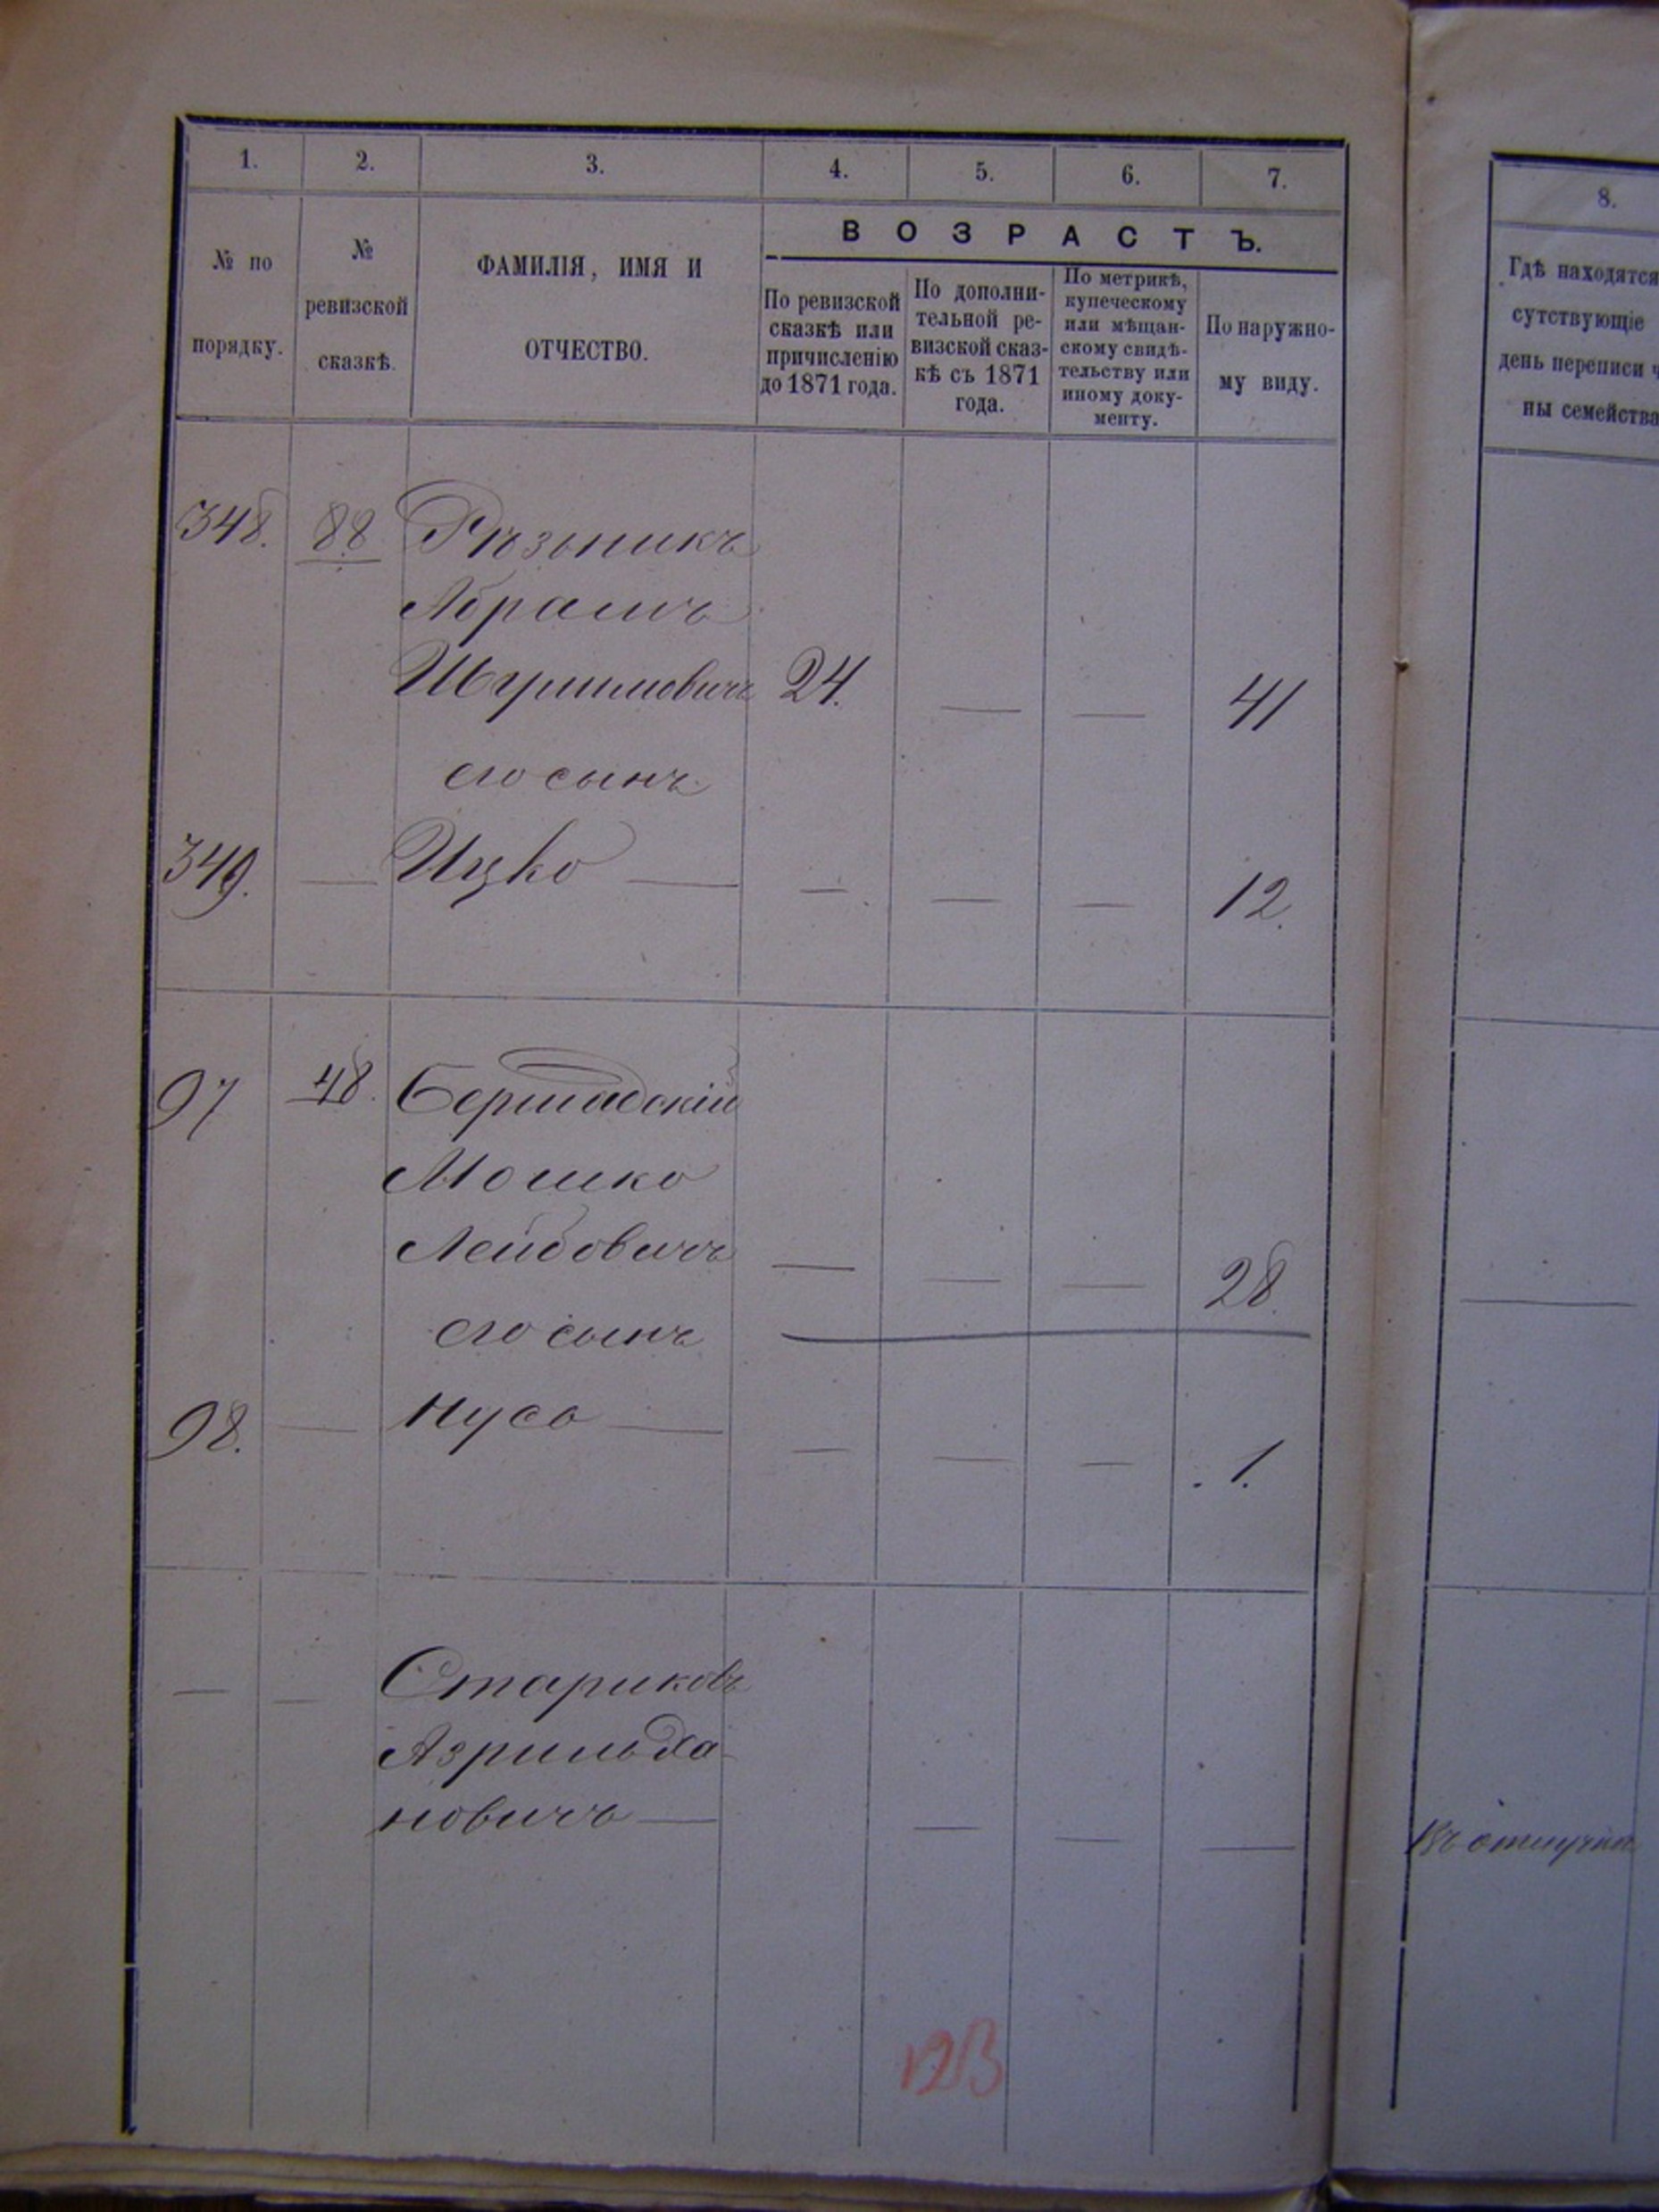 1. 2. 3. 4. 5. 6. 7.
№ по
порядку.
№
ревизской
сказкѣ.
ФАМИЛІЯ, ИМЯ И
ОТЧЕСТВО.
ВОЗРАСТЪ.
По ревизской
сказкѣ или
причисленію
до 1871 года.
По дополни-
тельной ре-
визской сказ-
кѣ съ 1871
года.
По метрикѣ,
купеческому
или мѣщан-
скому свидѣ-
тельству или
иному доку-
менту.
По наружно-
му виду.
348. 88 Рѣзникъ
Абрамъ
24. — — 41
его сынъ
349. — Ицко — — — — 12.
97 48. Бершадскій
Мошко
Лейбовичъ — — — 28.
его сынъ
98. — Нусь — — — — 1.
— — Стариковъ
Азриль Ха-
новичъ — — — —
123
8.
Гдѣ находятся
сутствующіе
день переписи ч
ны семейства
Въ отлучкѣ